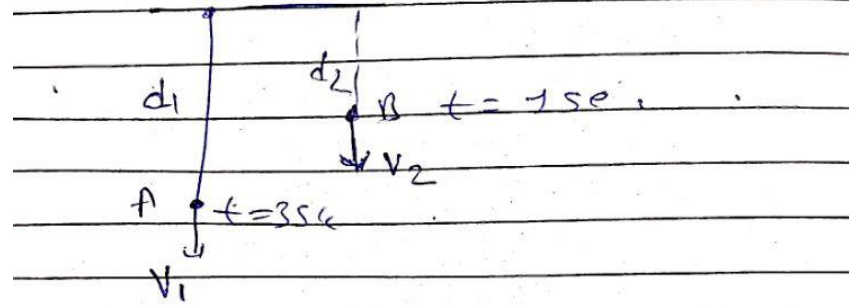 d2
d1
B t = 1 se.
V2
A t=3se
V1